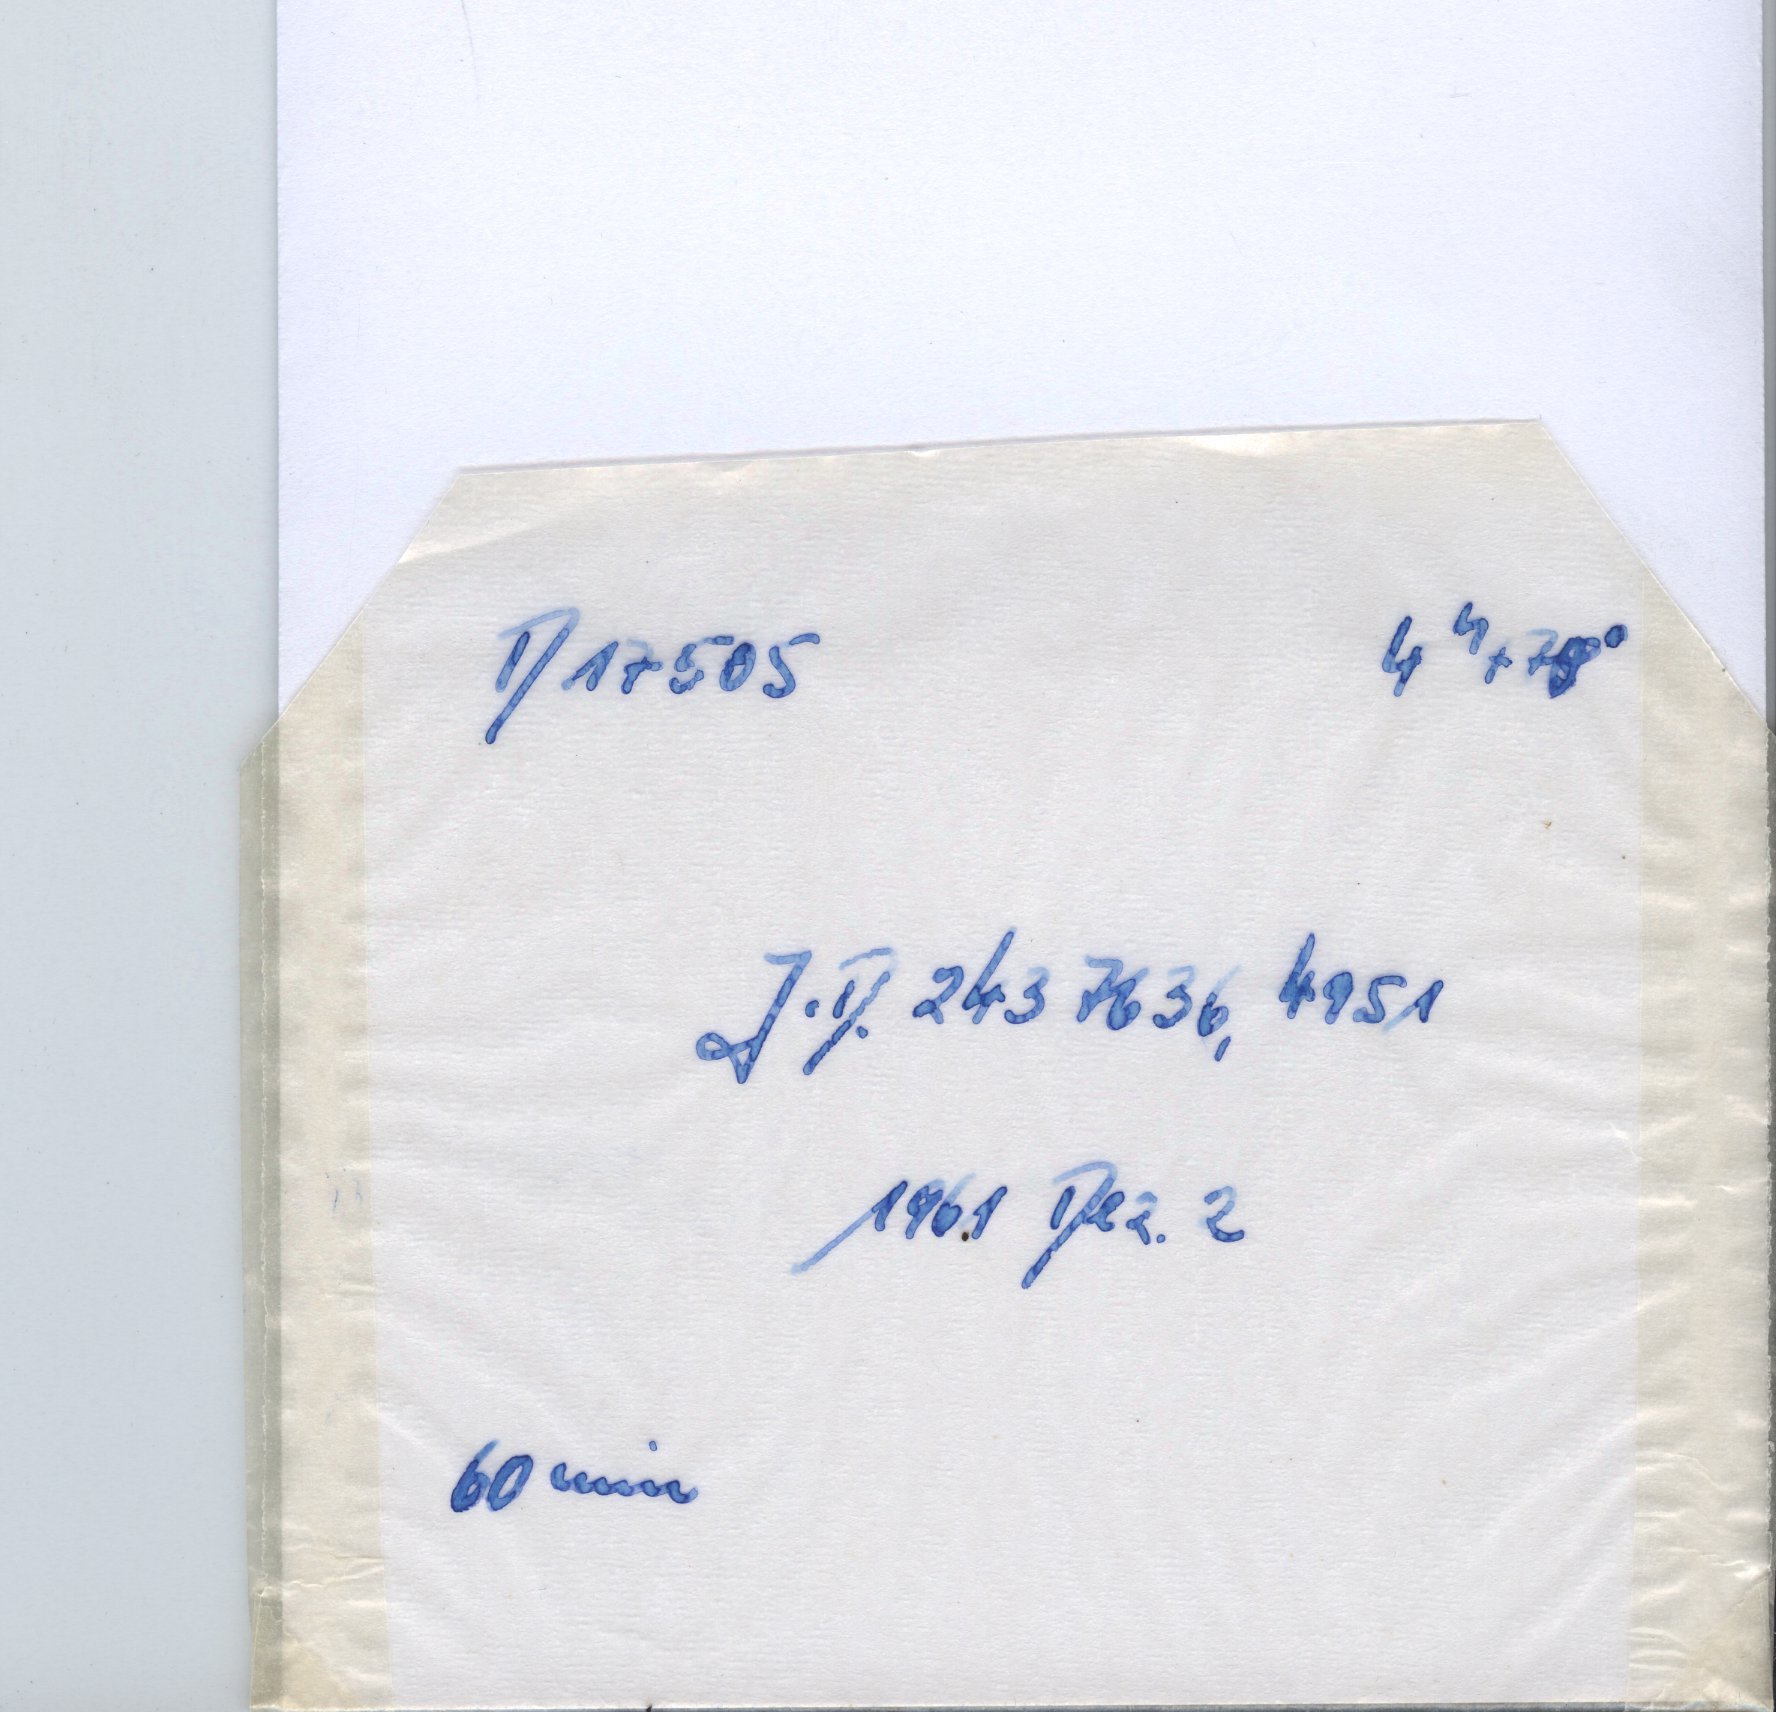 D 17505 4ʰ
J.D. 243 7636, 4951
1961 Dez. 2
60 min